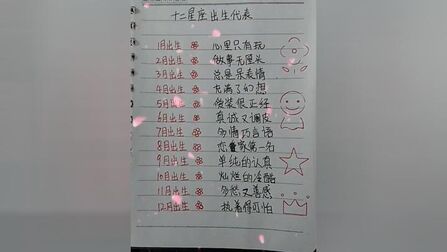 十二星座出生代表
1月出生 心里只有玩
2月出生 做事无厘头
3月出生 总是呆表情
4月出生 充满了幻想
5月出生 假装很正经
6月出生 真诚又调皮
7月出生 多情巧言语
8月出生 恋家第一名
9月出生 单纯的认真
10月出生 灿烂的冷酷
11月出生 多愁又善感
12月出生 执着得可怕